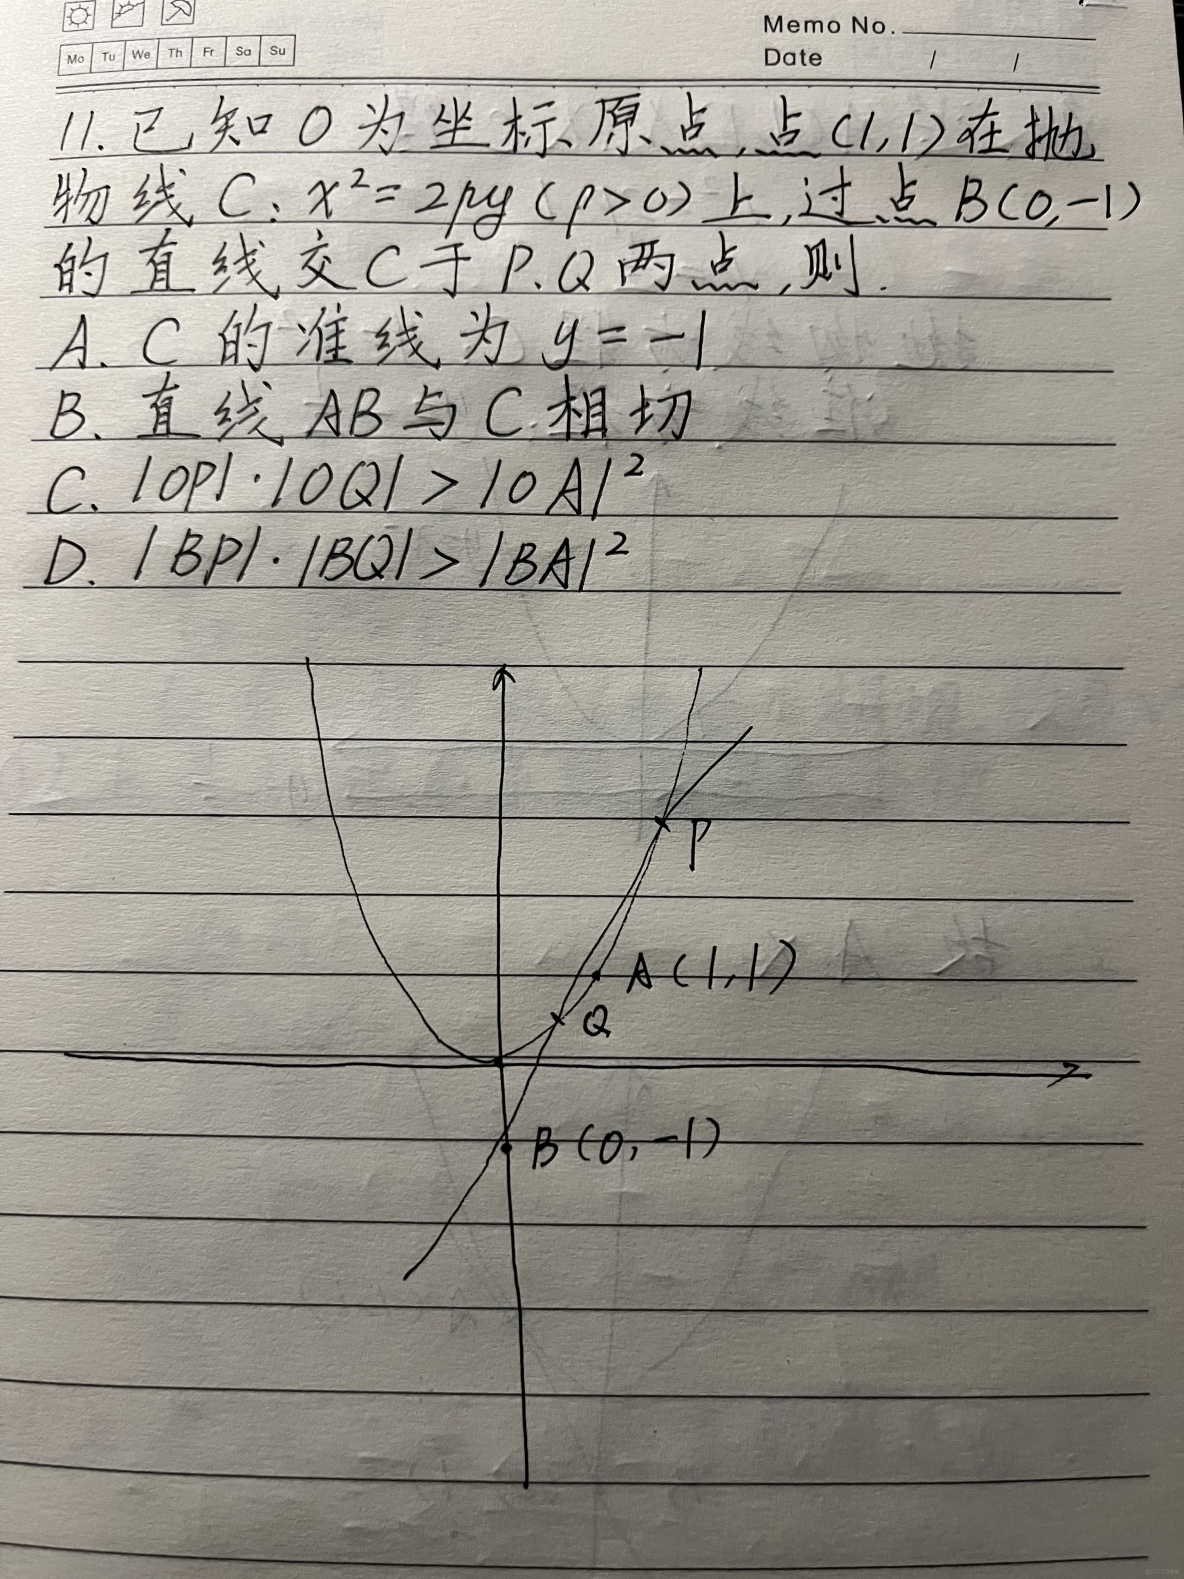 Memo No.
Mo Tu We Th Fr Sa Su
Date / /
11. 已知O为坐标原点,点(1,1)在抛
物线C: x²=2py(p>0)上,过点B(0,-1)
的直线交C于P.Q两点,则.
A. C的准线为 y=-1
B. 直线AB与C相切
C. |OP|·|OQ|>|OA|²
D. |BP|·|BQ|>|BA|²
P
A(1,1)
Q
B(0,-1)